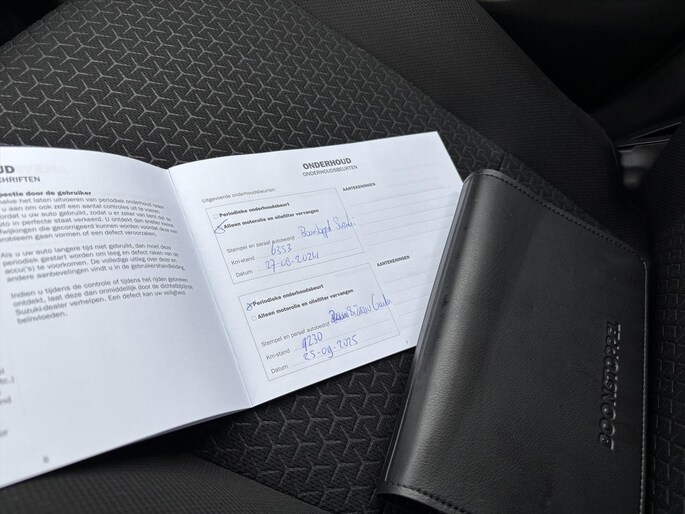 UD
HRIFTEN
ectie door de gebruiker
halve het laten uitvoeren van periodiek onderhoud
u aan om ook zelf een aantal controles uit te voeren
ordat u uw auto gebruikt, zodat u er zeker van bent dat de
uto in perfecte staat verkeerd. U ontdekt dan sneller kleine
afwijkingen die gecorrigeerd kunnen worden voordat deze een
probleem gaan vormen of een defect veroorzaken.
Als u uw auto langere tijd niet gebruikt, dan moet deze
periodiek gestart worden om leeg en defect raken van de
accu('s) te voorkomen. De volledige uitleg over deze en
andere aanbevelingen vindt u in de gebruikershandleiding.
Indien u tijdens de controle of tijdens het rijden gebreken
ontdekt, laat deze dan onmiddellijk door de dichtstbijzijnde
Suzuki-dealer verhelpen. Een defect kan uw veiligheid
beïnvloeden.
etc.)
8
ONDERHOUD
ONDERHOUDSBEURTEN
Uitgevoerde onderhoudsbeurten
AANTEKENINGEN
Periodieke onderhoudsbeurt
Alleen motorolie en oliefilter vervangen
Stempel en paraaf autobedrijf
Km-stand 6353
Datum 27-08-2024
AANTEKENINGEN
Periodieke onderhoudsbeurt
Alleen motorolie en oliefilter vervangen
Stempel en paraaf autobedrijf
Km-stand 9230
Datum 25-09-2025
BOONSTRA